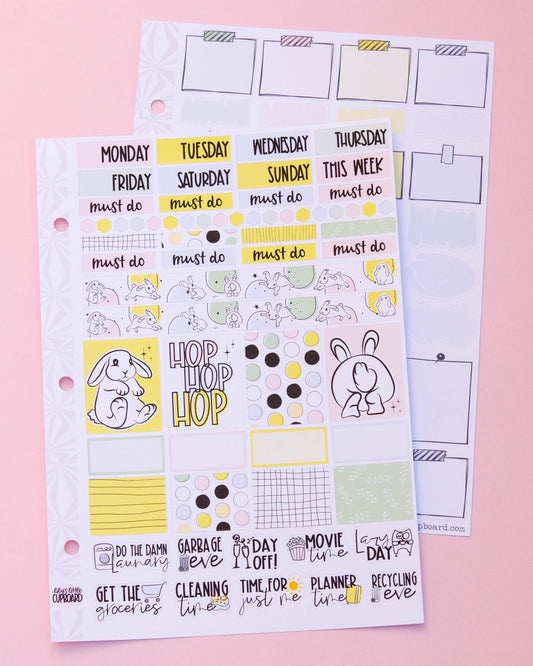 MONDAY TUESDAY WEDNESDAY THURSDAY
FRIDAY SATURDAY SUNDAY THIS WEEK
must do must do must do must do
must do must do must do must do
HOP
HOP
HOP
DO THE DAMN laundry GARBAGE eve DAY OFF! MOVIE time Lazy DAY
GET THE groceries CLEANING time TIME FOR just me PLANNER time RECYCLING eve
lily's little CUPBOARD
pboard.com